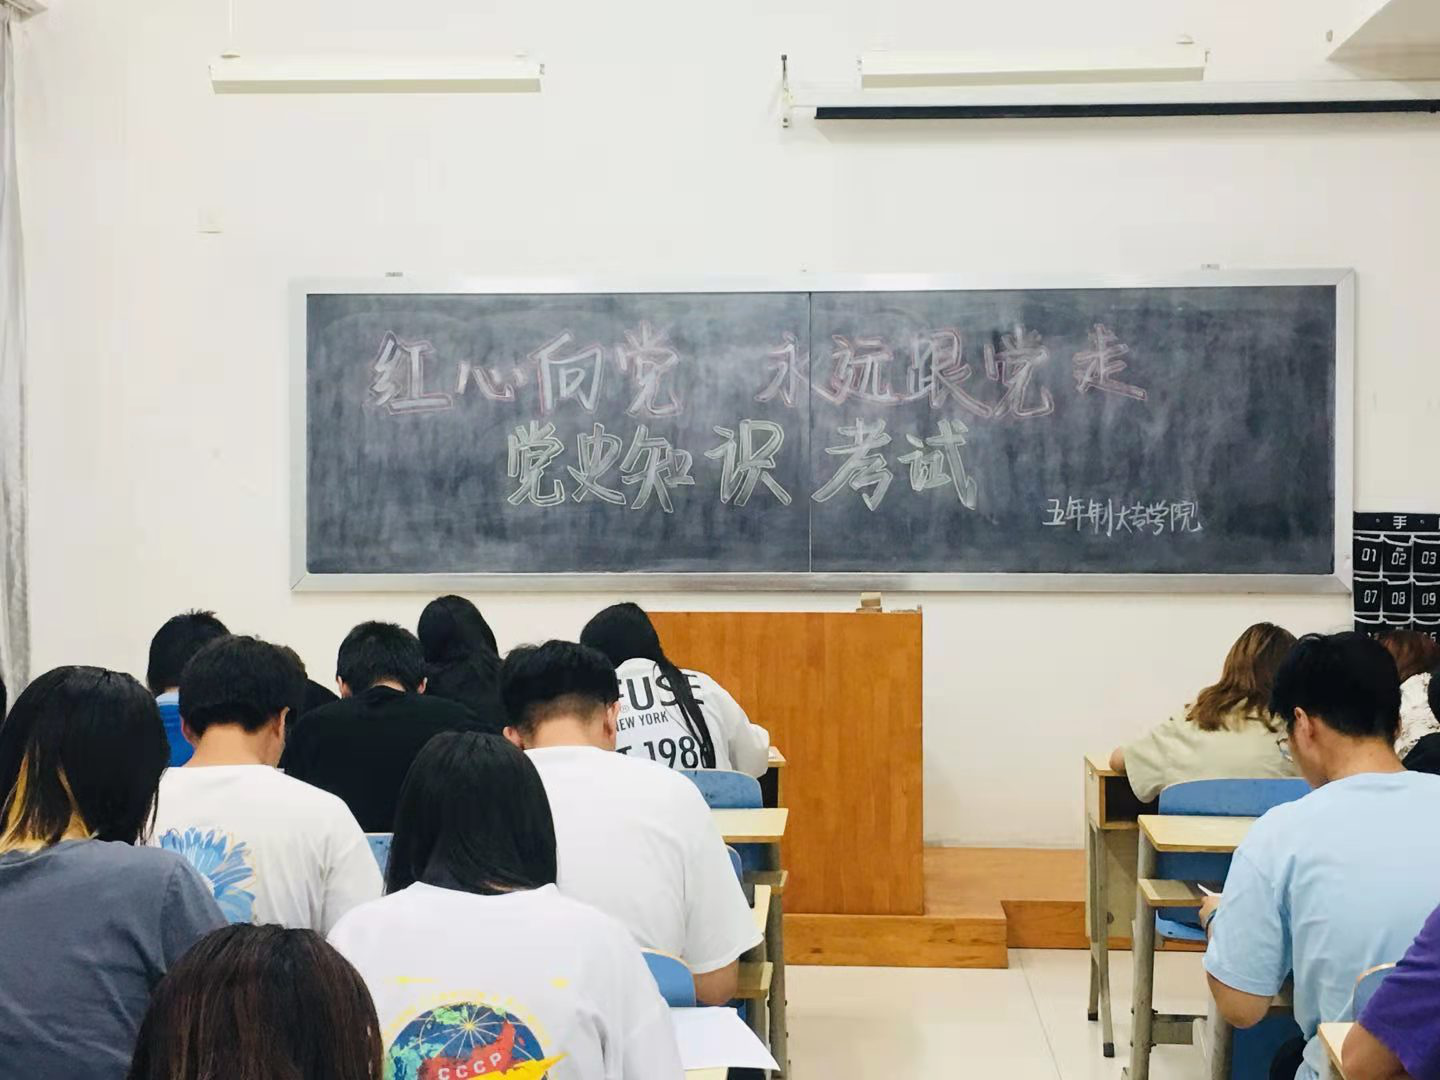 红心向党 永远跟党走
党史知识考试
五年制大专学院
手
01 02 03
07 08 09
FUSE
NEW YORK
1986
CCCP